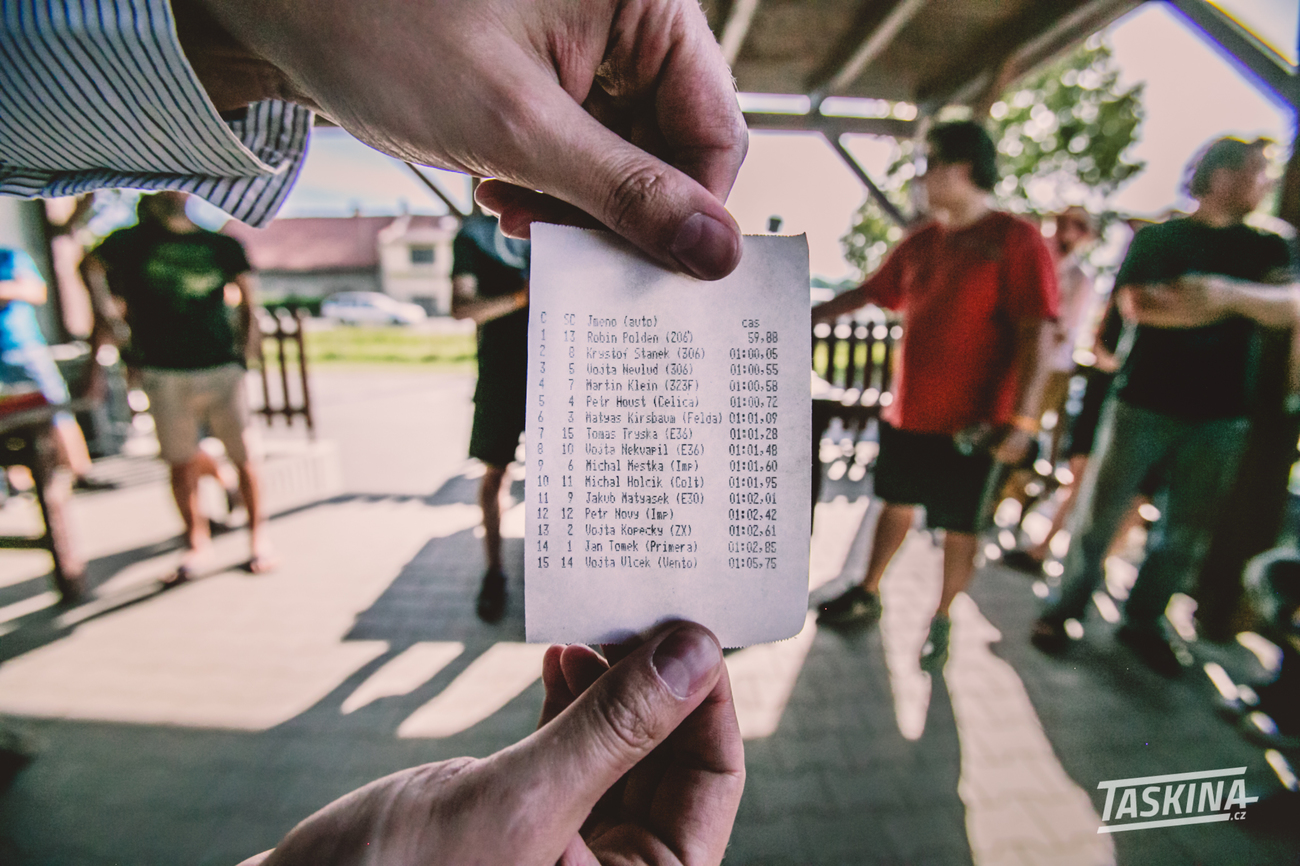 C SC Jmeno (auto) cas
1 13 Robin Polden (206) 59,88
2 8 Krystof Stanek (306) 01:00,05
3 5 Vojta Nevlud (306) 01:00,55
4 7 Martin Klein (323F) 01:00,58
5 4 Petr Houst (Celica) 01:00,72
6 3 Matyas Kirsbaum (Felda) 01:01,09
7 15 Tomas Tryska (E36) 01:01,28
8 10 Vojta Nekvapil (E36) 01:01,48
9 6 Michal Mestka (Imp) 01:01,60
10 11 Michal Holcik (Colt) 01:01,95
11 9 Jakub Matyasek (E30) 01:02,01
12 12 Petr Novy (Imp) 01:02,42
13 2 Vojta Kopecky (ZX) 01:02,61
14 1 Jan Tomek (Primera) 01:02,85
15 14 Vojta Vlcek (Vento) 01:05,75
TASKINA.cz